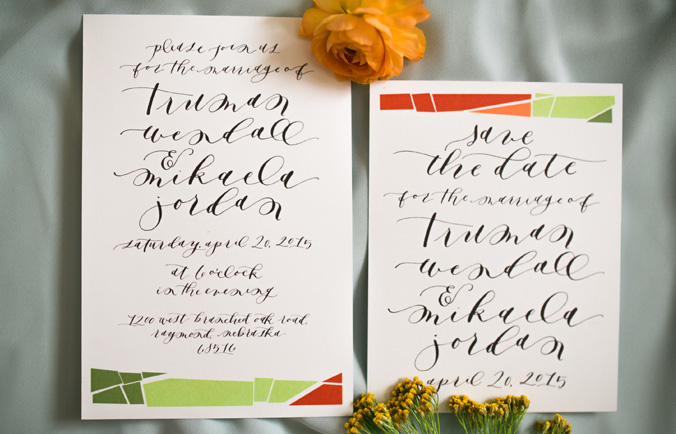 please join us
for the marriage of
truman
wendall
&
mikaela
jordan
saturday, april 20, 2015
at 6 o'clock
in the evening
1200 west branched oak road,
raymond, nebraska
68516
save
the date
for the marriage of
truman
wendall
&
mikaela
jordan
april 20, 2015